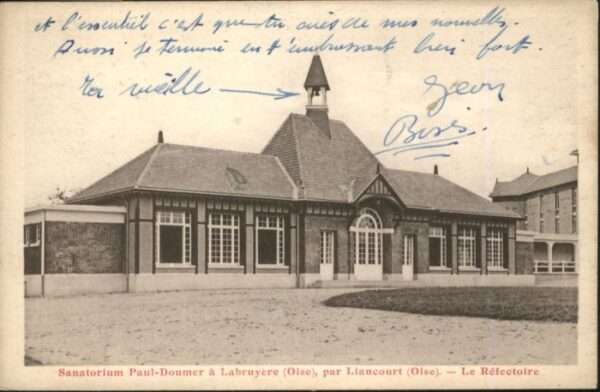 et l'essentiel c'est que tu aies de mes nouvelles.
Aussi je termine en t'embrassant bien fort.
vieille
Bises.
Sanatorium Paul-Doumer à Labruyère (Oise), par Liancourt (Oise). — Le Réfectoire